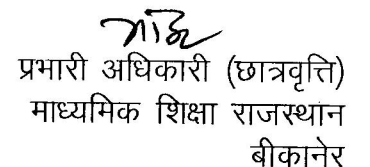 प्रभारी अधिकारी (छात्रवृत्ति)
माध्यमिक शिक्षा राजस्थान
बीकानेर